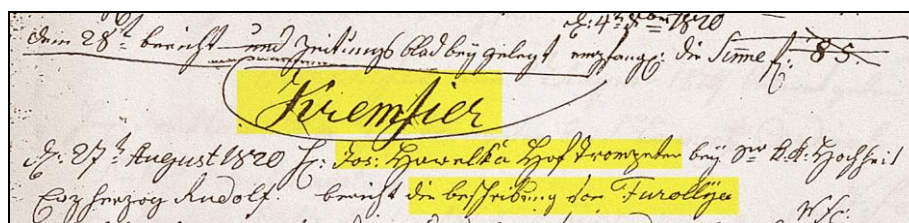 d: 4t 1820
dem 28t bericht und Zeitungsblad bey gelegt empfang: die Sume f: 85.
Kremsier
d: 27t August 1820 H: Jos: Hawelka Hoftrompeter bey Sr k.k: Hochheit
Erzherzog Rudolf. bericht die beschreibung von